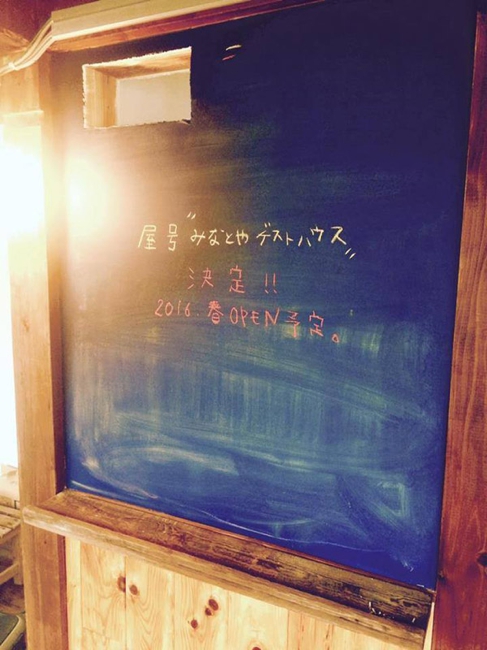 屋号"みなとやゲストハウス"
決定!!
2016.春OPEN予定。